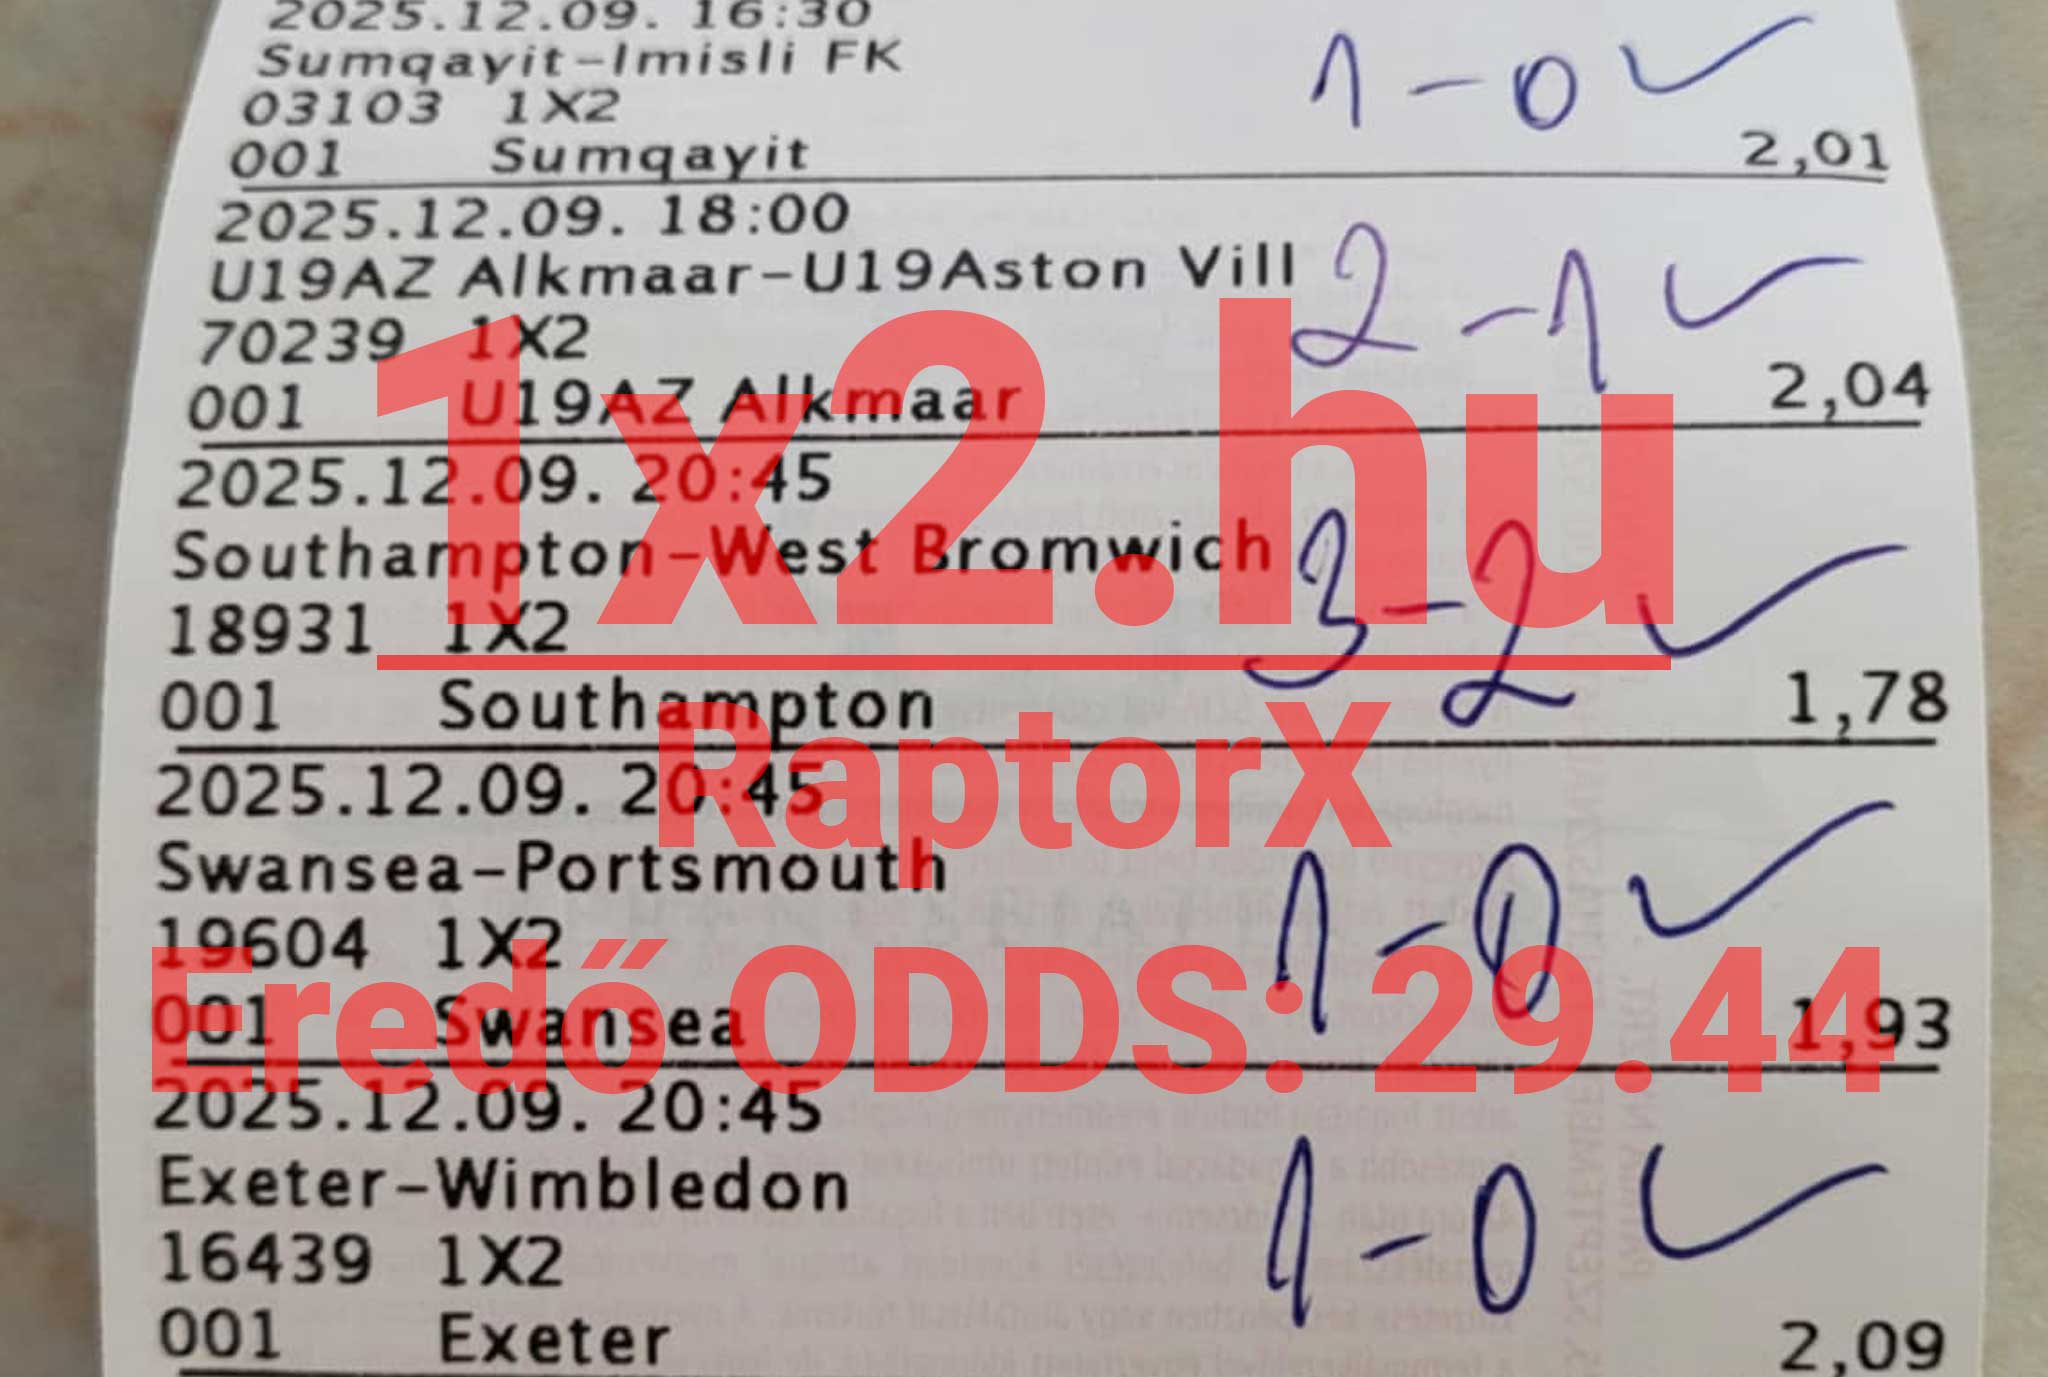 2025.12.09. 16:30
Sumqayit-Imisli FK
1-0 ✓
03103 1X2
001 Sumqayit 2,01
2025.12.09. 18:00
U19AZ Alkmaar-U19Aston Vill
2-1 ✓
70239 1X2
001 U19AZ Alkmaar 2,04
2025.12.09. 20:45
Southampton-West Bromwich
3-2 ✓
18931 1X2
001 Southampton 1,78
2025.12.09. 20:45
Swansea-Portsmouth
1-0 ✓
19604 1X2
001 Swansea 1,93
2025.12.09. 20:45
Exeter-Wimbledon
1-0 ✓
16439 1X2
001 Exeter 2,09
1x2.hu
RaptorX
Eredő ODDS: 29.44